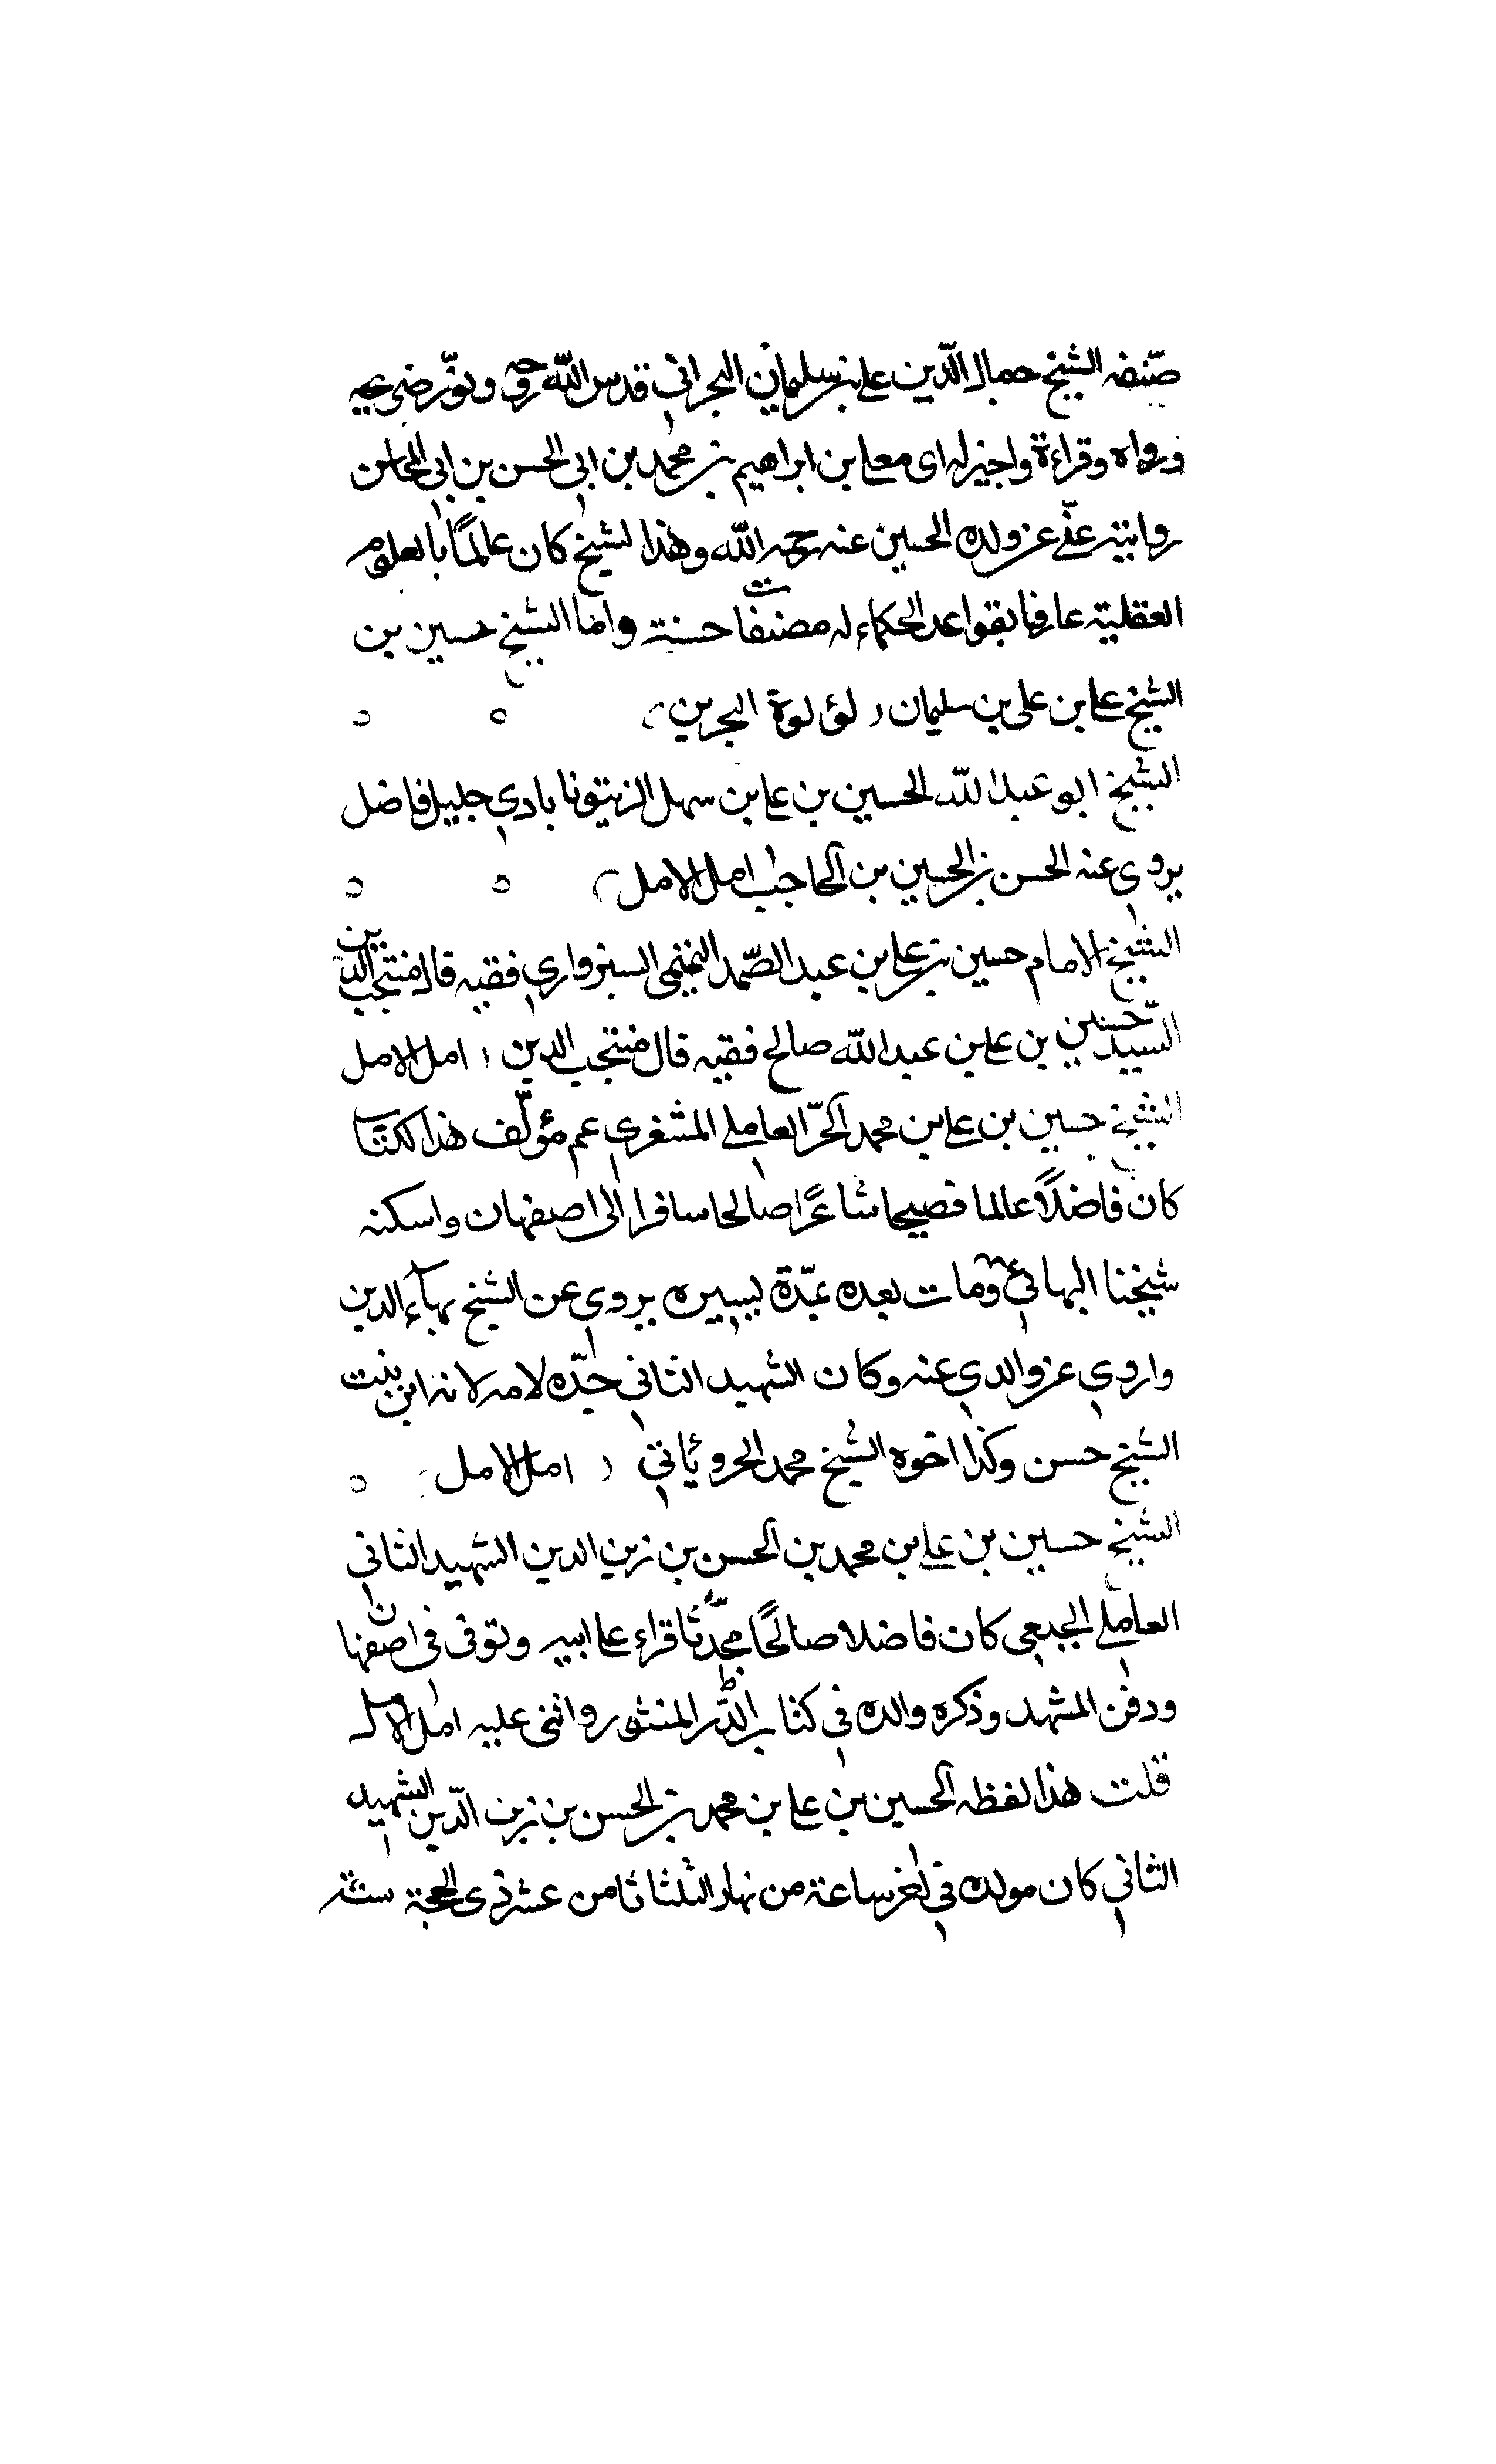 صنفه الشيخ جمال الدّين علي بن سليمان البحراني قدس اللّه روحه ونوّر ضريحه
ورواه وقراءة واجيز له اى معلي بن ابراهيم بن محمد بن ابى الحسن بن ابى المحاسن
روايته عنّي عن ولده الحسين عنه رحمه اللّه وهذا لشيخ كان عالمًا بالعلوم
العقلية عارفا بقواعد الحكماء له مصنفات حسنة واما الشيخ حسين بن
الشيخ علي بن علي بن سليمان ر لؤلوة البحرين
الشيخ ابو عبد اللّه الحسين بن علي بن سهل الزيتونابادي جليل فاضل
يروي عنه الحسن بن الحسين بن الحاجب امل الامل
الشيخ الامام حسين بن علي بن عبد الصّمد التميمى السبزواري فقيه قال منتجب الدين
السيد حسين بن علي بن عبد اللّه صالح فقيه قال منتجب الدين ر امل الامل
الشيخ حسين بن علي بن محمد الحرّ العاملي المشغري عم مؤلّف هذا لكتاب
كان فاضلًا عالما فصيحا شاعرًا صالحا سافر الى اصفهان واسكنه
شيخنا البهائي ومات بعده بمدّة يسيره يروي عن الشيخ بهاء الدين
واروي عن والدي عنه وكان الشهيد الثاني جدّه لامه لانه ابن بنت
الشيخ حسن وكذا اخوه الشيخ محمد الحر وياتي ر امل الامل
الشيخ حسين بن علي بن محمد بن الحسن بن زين الدين الشهيد الثاني
العاملي الجبعي كان فاضلا صالحًا محدّثا قراء علي ابيه وتوفى فى اصفهان
ودفن المشهد وذكره والده في كتاب الدّر المنثور واثنى عليه امل الامل
قلت هذا لفظه الحسين بن علي بن محمد بن الحسن بن زين الدّين الشهيد
الثاني كان مولده في ساعة من نهار الثلثا ثامن عشر ذى الحجة سنة